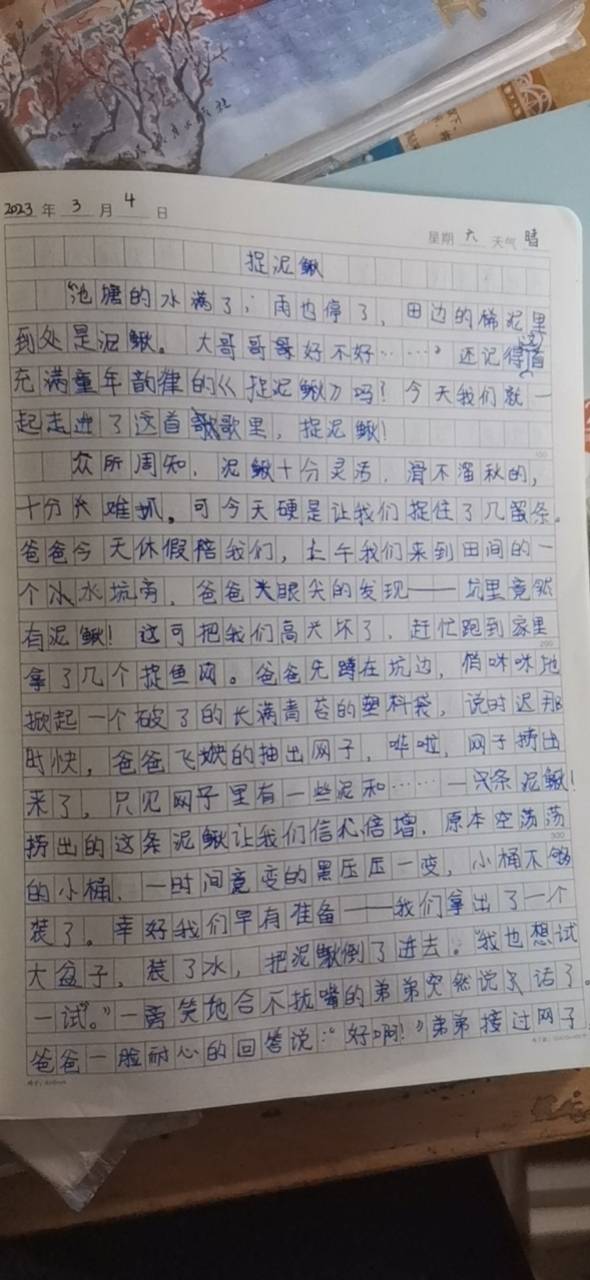 2023年 3月 4日
星期 六 天气 晴
捉泥鳅
“池塘的水满了；雨也停了，田边的稀泥里
到处是泥鳅。大哥哥好不好……”还记得这首
充满童年韵律的《捉泥鳅》吗？今天我们就一
起走进了这首歌里，捉泥鳅！
100
众所周知，泥鳅十分灵活，滑不溜秋的，
十分难抓。可今天硬是让我们捉住了几
爸爸今天休假陪我们，上午我们来到田间的一
个水坑旁，爸爸眼尖的发现——坑里竟然
有泥鳅！这可把我们高兴坏了，赶忙跑到家里
200
拿了几个捉鱼网。爸爸先蹲在坑边，俏咪咪地
掀起一个破了的长满青苔的塑料袋，说时迟那
时快，爸爸飞快的抽出网子，哗啦，网子捞出
来了，只见网子里有一些泥和……一条泥鳅！
捞出的这条泥鳅让我们信心倍增，原本空荡荡
300
的小桶，一时间竟变的黑压压一变，小桶不够
装了。幸好我们早有准备——我们拿出了一个
大盆子，装了水，把泥鳅倒了进去。“我也想试
一试。”一旁笑地合不拢嘴的弟弟突然说话了。
爸爸一脸耐心的回答说：“好啊！”弟弟接过网子